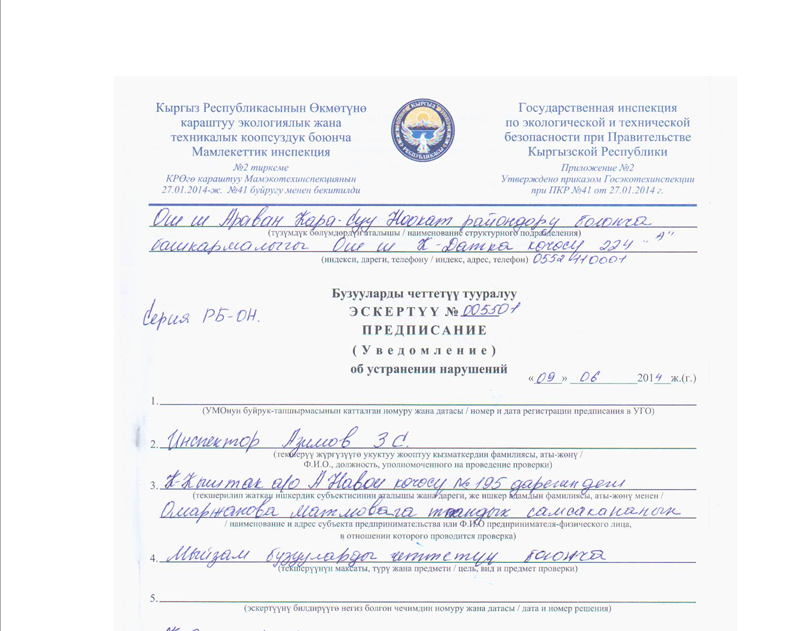 Кыргыз Республикасынын Өкмөтүнө
караштуу экологиялык жана
техникалык коопсуздук боюнча
Мамлекеттик инспекция
№2 тиркеме
КРӨгө караштуу Мамэкотехинспекциянын
27.01.2014-ж. №41 буйругу менен бекитилди
КЫРГЫЗ
РЕСПУБЛИКАСЫ
Государственная инспекция
по экологической и технической
безопасности при Правительстве
Кыргызской Республики
Приложение №2
Утверждено приказом Госэкотехинспекции
при ПКР №41 от 27.01.2014 г.
Ош ш Араван Кара-Суу Ноокат райондору боюнча
(түзүмдүк бөлүмдөрдүн аталышы / наименование структурного подразделения)
башкармалыгы Ош ш К-Датка көчөсү 224 "А"
(индекси, дареги, телефону / индекс, адрес, телефон) 0552 410001
Бузууларды четтетүү тууралуу
ЭСКЕРТҮҮ № 005501
Серия РБ-ОН.
ПРЕДПИСАНИЕ
(Уведомление)
об устранении нарушений
«09» 06 2014 ж.(г.)
1.
(УМОнун буйрук-тапшырмасынын катталган номуру жана датасы / номер и дата регистрации предписания в УГО)
2. Инспектор Азимов З С.
(текшерүү жүргүзүүгө укуктуу жооптуу кызматкердин фамилиясы, аты-жөнү /
Ф.И.О., должность, уполномоченного на проведение проверки)
3. К-Кыштак а/о А Навои көчөсү № 195 дарегиндеги
(текшерилип жаткан ишкердик субъектисинин аталышы жана дареги, же ишкер адамдын фамилиясы, аты-жөнү менен /
Омаржанова
/ наименование и адрес субъекта предпринимательства или Ф.И.О предпринимателя-физического лица,
в отношении которого проводится проверка)
4. Мыйзам бузууларды четтетүү боюнча
(текшерүүнүн максаты, түрү жана предмети / цель, вид и предмет проверки)
5.
(эскертүүнү билдирүүгө негиз болгон чечимдин номуру жана датасы / дата и номер решения)